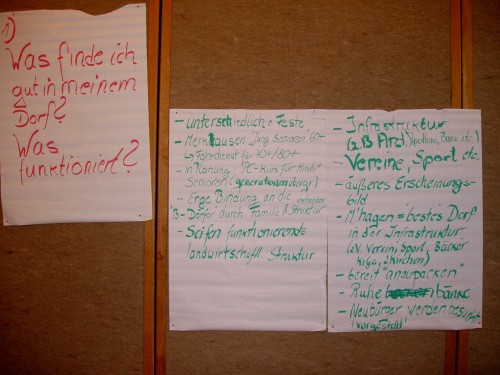 1)
Was finde ich
gut in meinem
Dorf?
Was
funktioniert?
- unterschiedliche Feste
- Mernhausen Jung Senioren 60+
↳ Fahrdienst für 70+/80+
- in Planung PC-Kurs für Kinder
Senioren (generationen
- Enge Bindung an die
B-Dörfer durch Familie & Struktur
- Seifen funktionierende
landwirtschaftl. Struktur
- Infrastruktur
(z.B. Arzt, Apotheke, Bank etc.)
- Vereine, Sport, etc.
- äußeres Erscheinungs-
bild
- M'hagen = bestes Dorf
in der Infrastruktur
(z.V. Verein, Sport, Bäcker
Kiga, 2 Kirchen)
- bereit "anzupacken"
- Ruhe bänke
- Neubürger werden besucht
"vorgestellt"